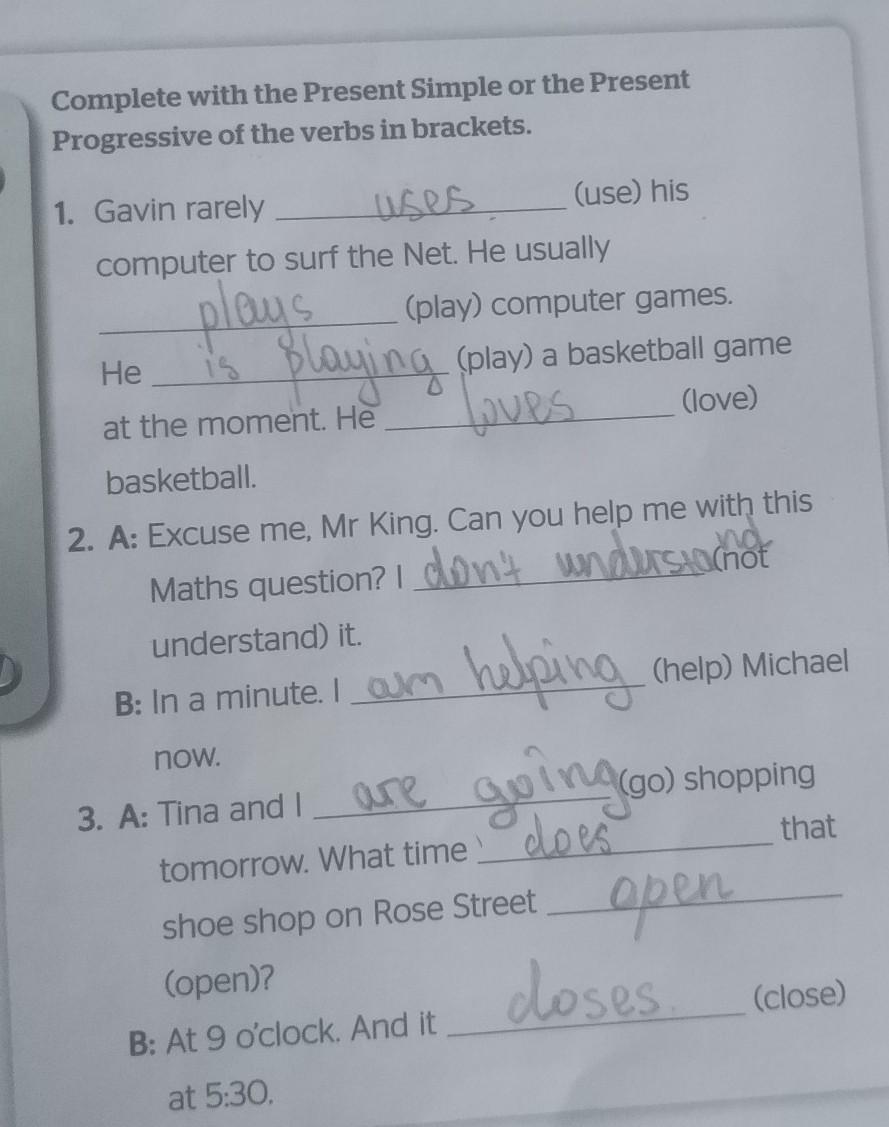 Complete with the Present Simple or the Present
Progressive of the verbs in brackets.
1. Gavin rarely uses (use) his
computer to surf the Net. He usually
plays (play) computer games.
He is playing (play) a basketball game
at the moment. He loves (love)
basketball.
2. A: Excuse me, Mr King. Can you help me with this
Maths question? I don't understand (not
understand) it.
B: In a minute. I am helping (help) Michael
now.
3. A: Tina and I are going (go) shopping
tomorrow. What time does that
shoe shop on Rose Street open
(open)?
B: At 9 o'clock. And it closes (close)
at 5:30.